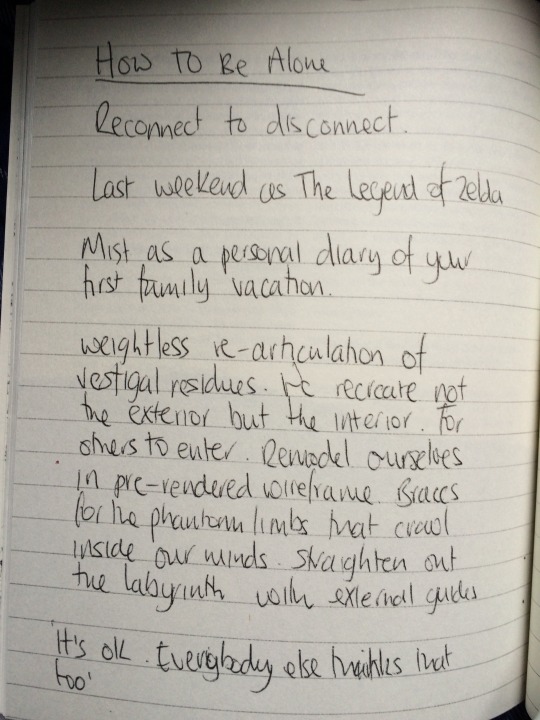 How To Be Alone
Reconnect to disconnect.
Last weekend as The Legend of Zelda
Mist as a personal diary of your
first family vacation.
weightless re-articulation of
vestigal residues. recreate not
the exterior but the interior. For
others to enter. Remodel ourselves
in pre-rendered wireframe. Braces
for the phantom limbs that crawl
inside our minds. Straighten out
the labyrinth with external guides
It's ok. Everybody else thinks that
too'